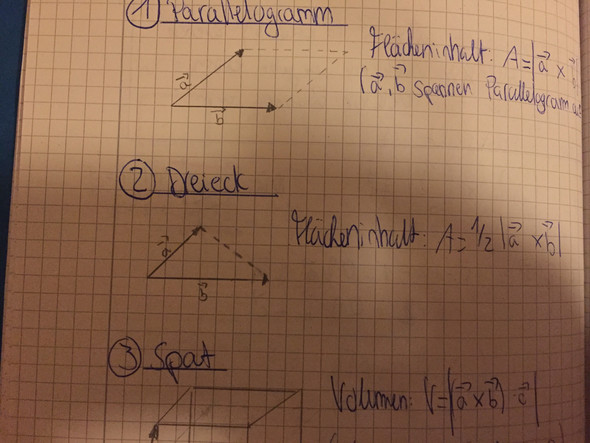 ① Parallelogramm
Flächeninhalt: A = |a⃗ x
a⃗
(a⃗, b⃗ spannen Parallelogramm
b⃗
② Dreieck
Flächeninhalt: A = 1/2 |a⃗ x b⃗|
a⃗
b⃗
③ Spat
Volumen: V = |(a⃗ x b⃗) · c⃗|